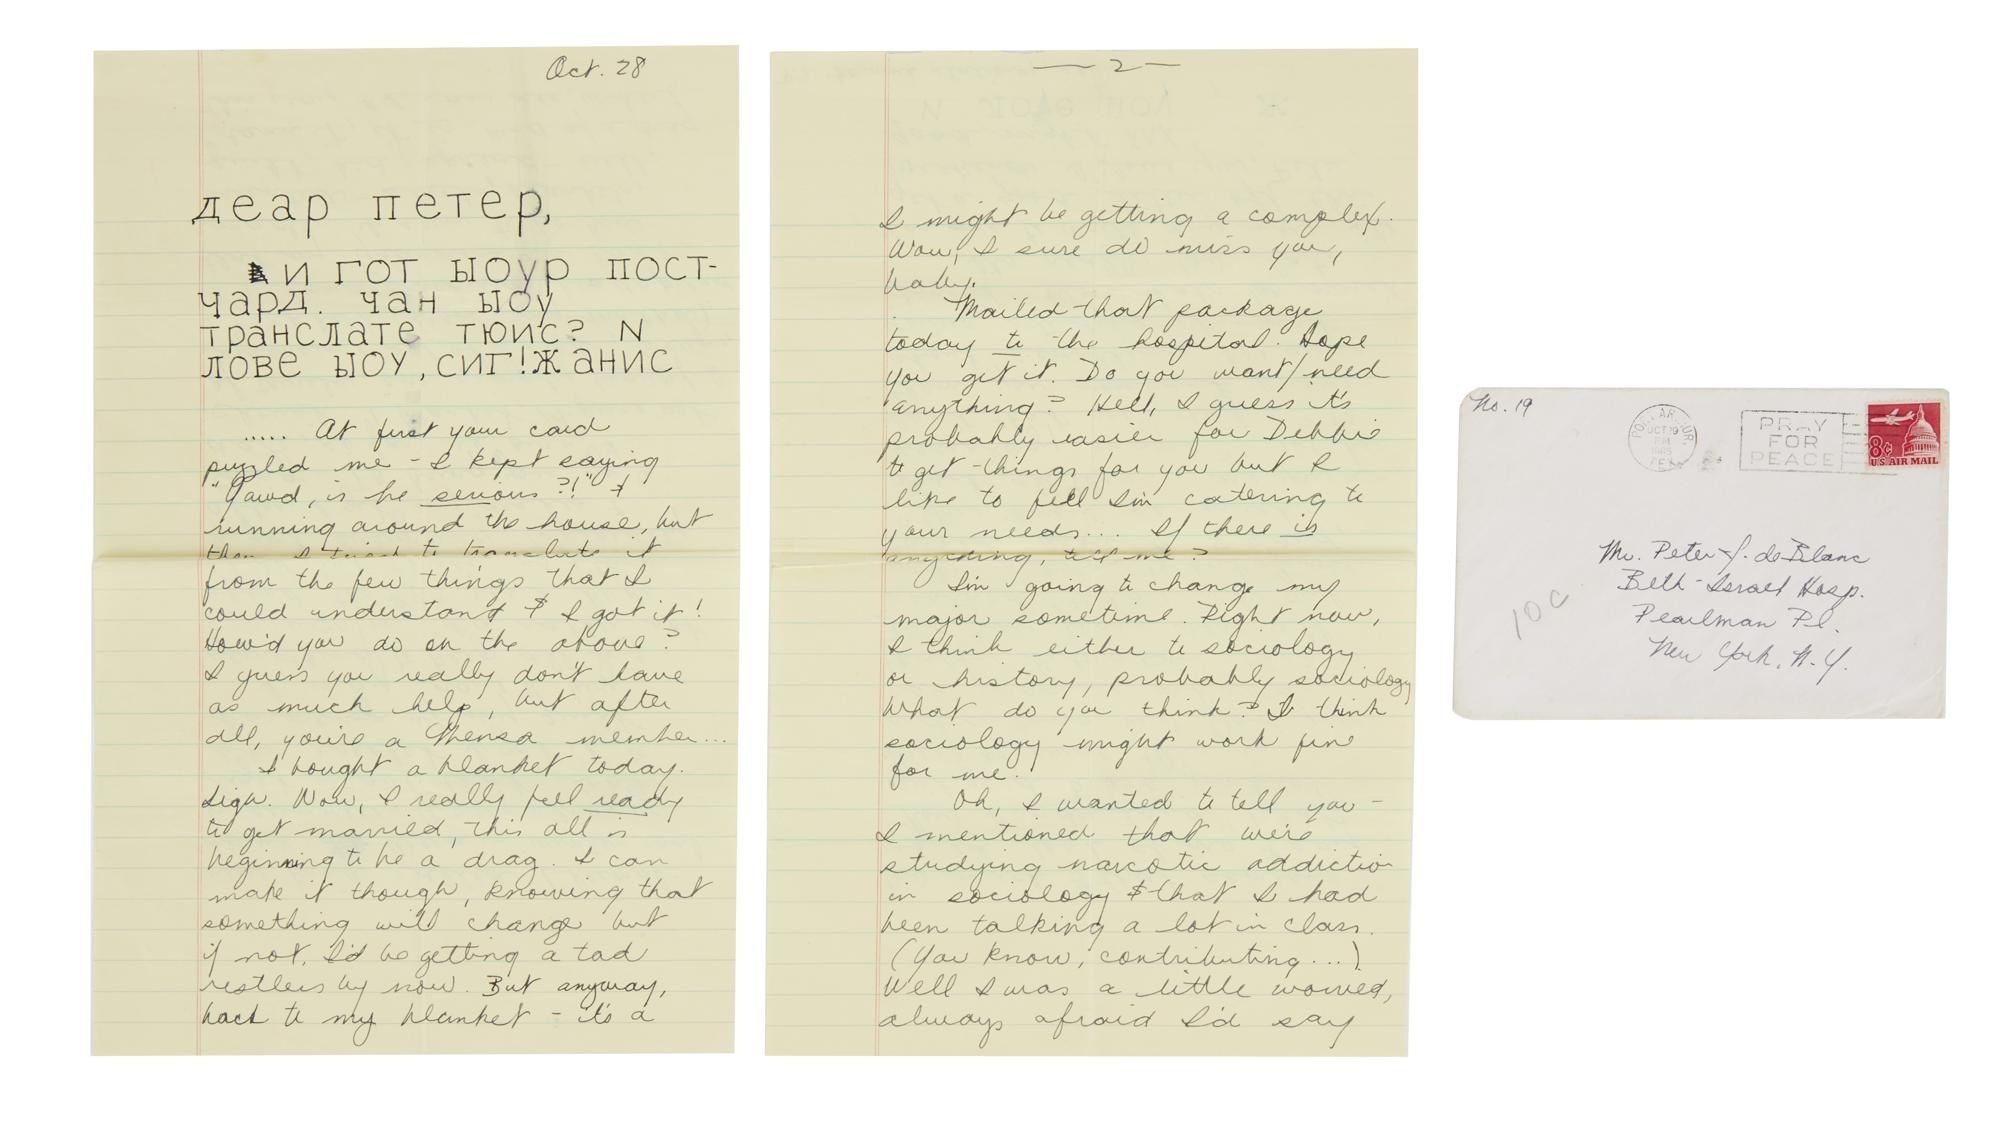 Oct. 28
деар петер,
и гот ыоур пост-
чард. чан ыоу
транслате тюис? N
лове ыоу, сиг! жанис
..... At first your card
puzzled me - I kept saying
"Gawd, is he serious?!" &
running around the house, but
then I tried to translate it
from the few things that I
could understand & I got it!
How'd you do on the above?
I guess you really don't have
as much help, but after
all, you're a Mensa member...
I bought a blanket today.
Sigh. Wow, I really feel ready
to get married, this all is
beginning to be a drag. I can
make it though, knowing that
something will change but
if not, I'd be getting a tad
restless by now. But anyway,
back to my blanket - it's a
— 2 —
I might be getting a complex.
Wow, I sure do miss you,
baby.
Mailed that package
today to the hospital. Hope
you get it. Do you want/need
anything? Hell, I guess it's
probably easier for Debbie
to get things for you but I
like to feel I'm catering to
your needs... If there is
anything, tell me?
I'm going to change my
major sometime. Right now,
I think either to sociology
or history, probably sociology
What do you think? I think
sociology might work fine
for me.
Oh, I wanted to tell you -
I mentioned that we're
studying narcotic addiction
in sociology & that I had
been talking a lot in class.
(You know, contributing...)
Well I was a little worried,
always afraid I'd say
No. 19
PORT ARTHUR
OCT 29
PM
1965
TEX
PRAY
FOR
PEACE
8¢
U.S. AIR MAIL
Mr. Peter J. de Blanc
Beth-Israel Hosp.
Pearlman Pl.
New York, N.Y.
10c